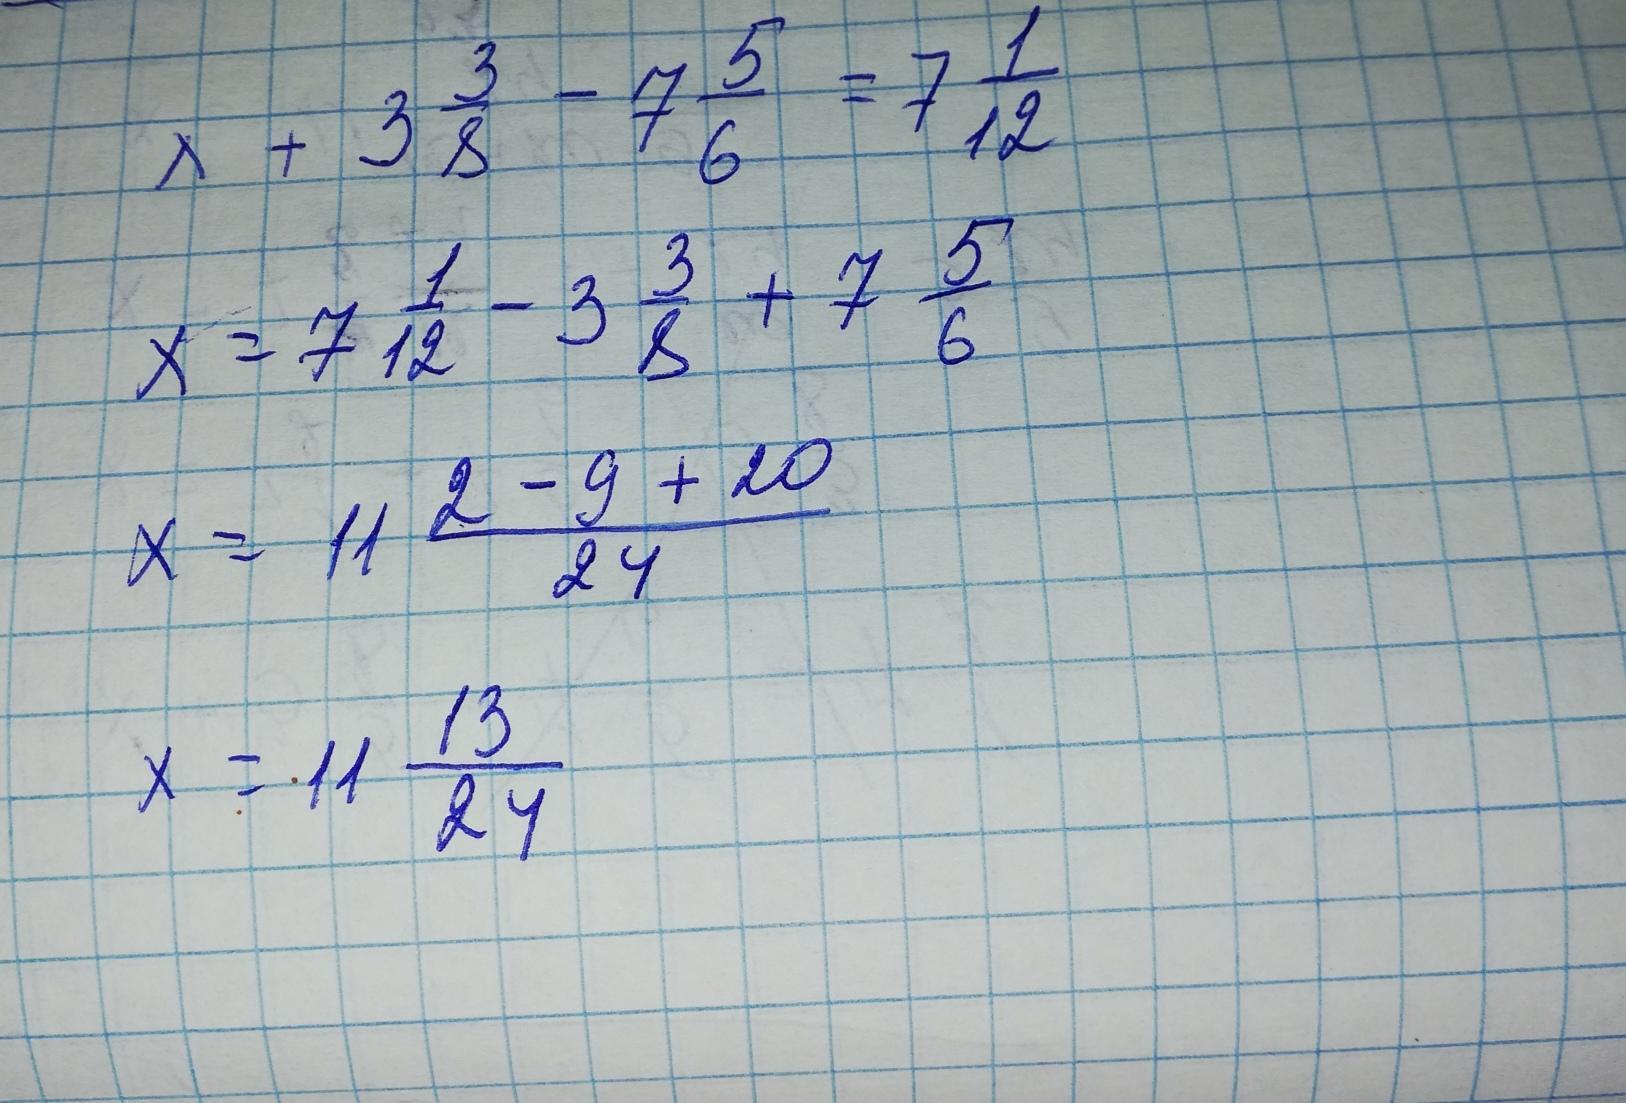 x + 3 3/8 - 7 5/6 = 7 1/12
x = 7 1/12 - 3 3/8 + 7 5/6
x = 11 (2 - 9 + 20)/24
x = 11 13/24